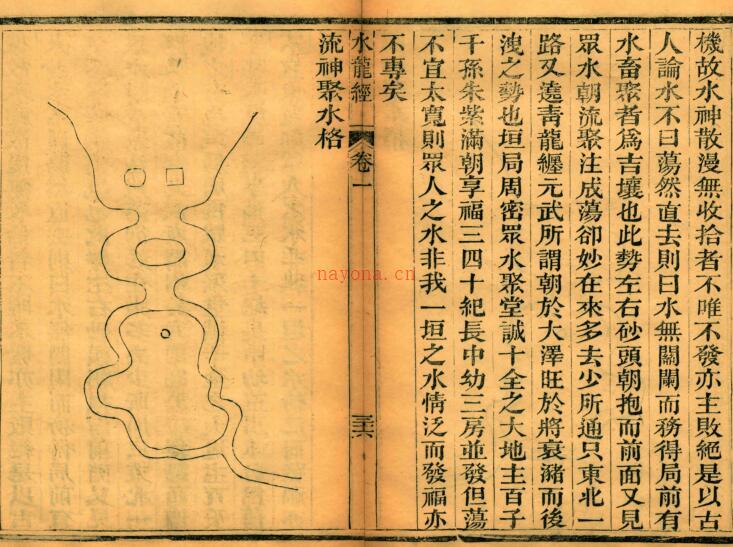 機故水神散漫無收拾者不唯不發亦主敗絕是以古
人論水不曰蕩然直去則曰水無關闌而務得局前有
水畜聚者爲吉壤也此勢左右砂頭朝抱而前面又見
眾水朝流聚注成蕩卻妙在來多去少所通只東北一
路又遶靑龍纏元武所謂朝於大澤旺於將衰瀦而後
洩之勢也垣局周密眾水聚堂誠十全之大地主百子
千孫朱紫滿朝享福三四十紀長中幼三房並發但蕩
不宜太寬則眾人之水非我一垣之水情泛而發福亦
不專矣
水龍經 卷一 三六
流神聚水格
nayona.cn